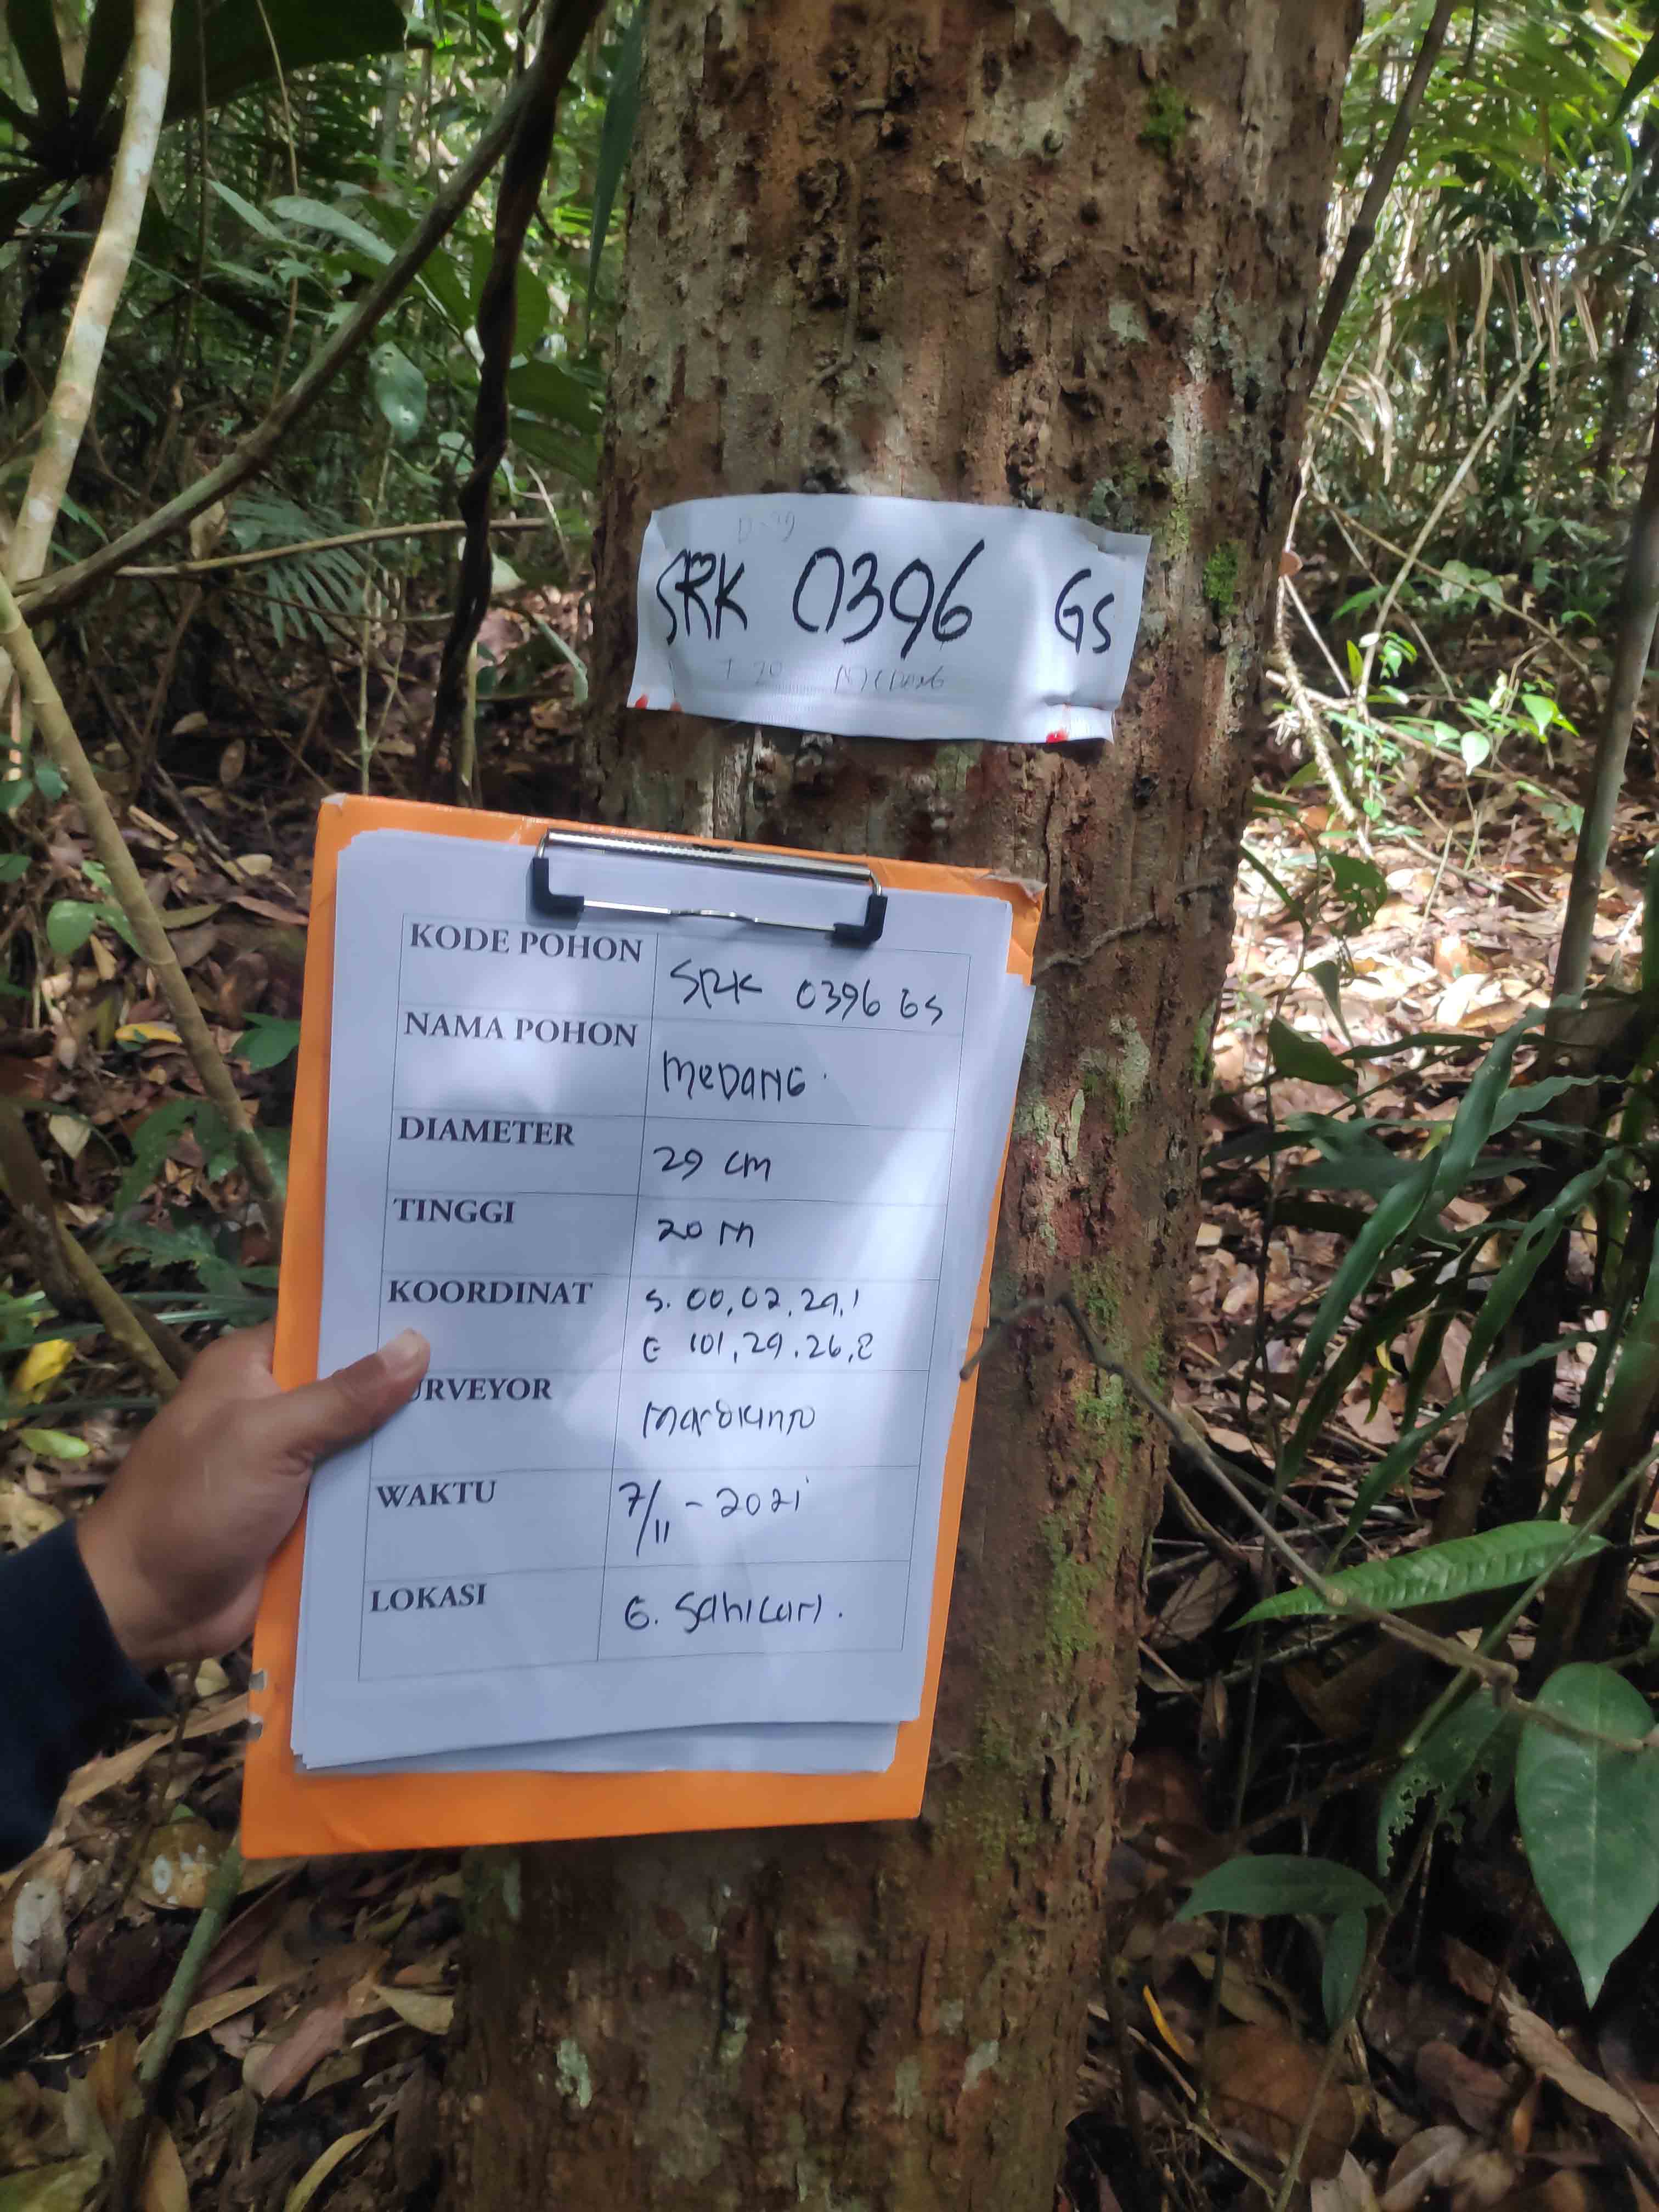 SRK 0396 GS
KODE POHON
SRK 0396 GS
NAMA POHON
MeDANG
DIAMETER
29 cm
TINGGI
20 m
KOORDINAT
S. 00,02,29,1
E 101,29.26,8
URVEYOR
WAKTU
7/11-2021
LOKASI
G. Sahilan.